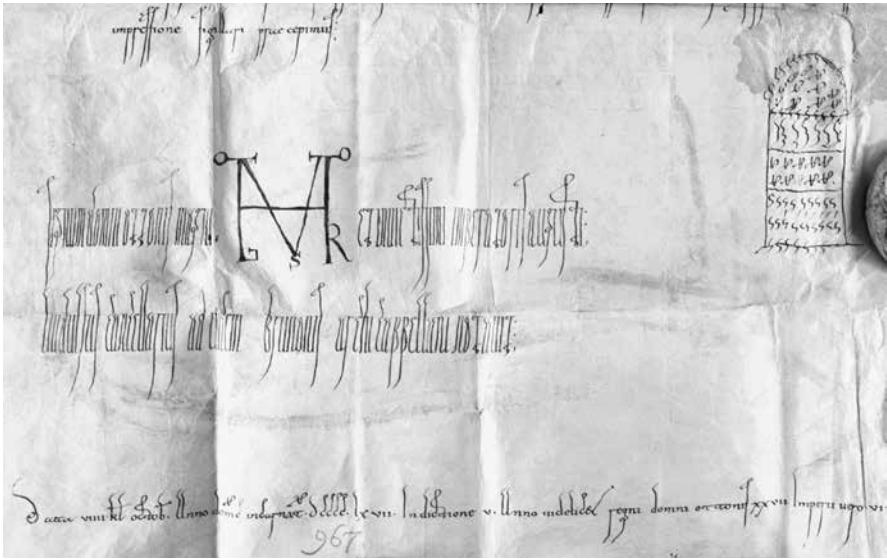 impressione sigillari praecepimus:
Signum domni ottonis magni. et inuictissimi imperatoris augusti:
cancellarius ad uicem brunonis archicappellani notaui:
Data viiii kł octob. Anno dom̄ incarnat. dcccc. lx vii. Indictione v. Anno regni domni ottonis xxvii Imperii uero vi
967